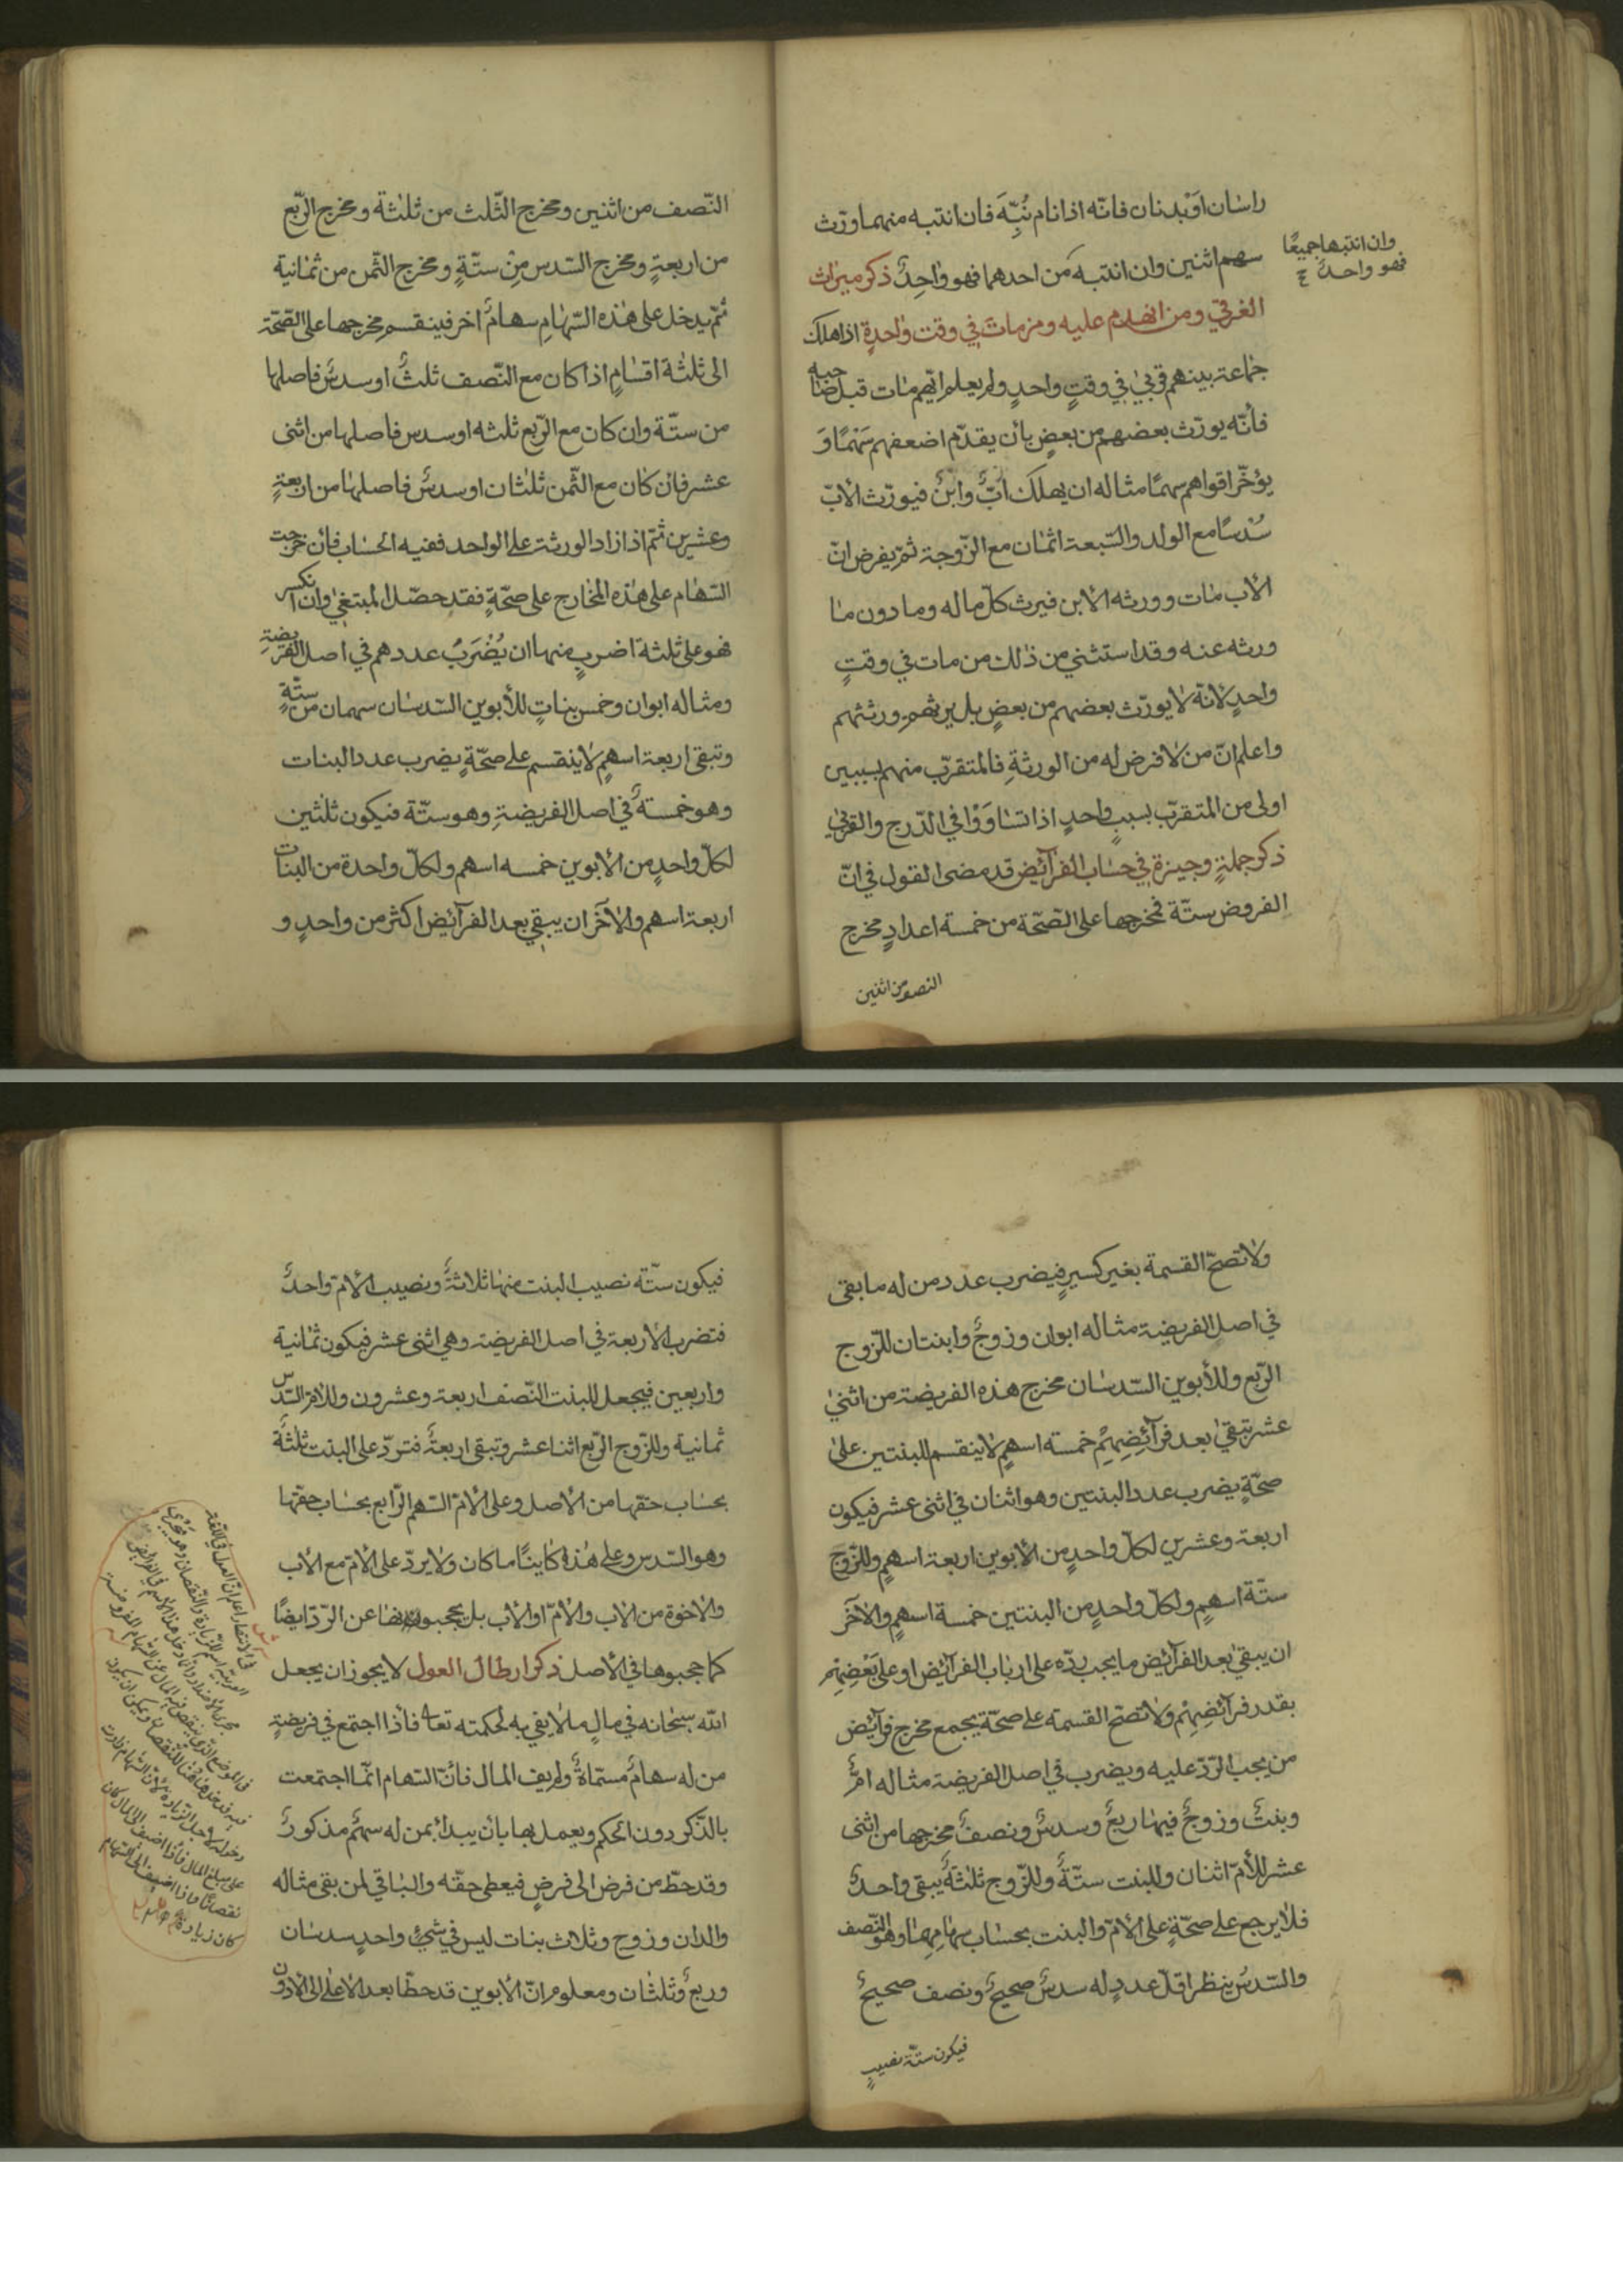 راسان او بدنان فانّه اذا نام نُبِّهَ فان انتبه منهما ورّث
سهم اثنين وان انتبه من احدهما فهو واحِدٌ ذكر ميراث
وان انتبها جميعًا
فهو واحد
الغرقى ومن انهدم عليه ومن مات في وقت واحدةٍ اذا هلك
جماعة بينهم قربى في وقتٍ واحدٍ ولم يعلم ايّهم مات قبل صاحبه
فأنّه يورّث بعضهم من بعضٍ بأن يقدّم اضعفهم سَهْمًا وَ
يؤخّر اقواهم سهمًا مثاله ان يهلك ابٌ وابنٌ فيورّث الأبّ
سُدسًا مع الولد والسّبعة اثمان مع الزّوجة ثمّ يفرض انّ
الأب مات وورثه الأبن فيرث كلّ ماله وما دون ما
ورثه عنه وقد استثني من ذلك من مات في وقتٍ
واحدٍ لانّه لا يورّث بعضهم من بعضٍ بل يرثهم ورثتهم
واعلم انّ من لا فرض له من الورثةِ فالمتقرّب منهم بسببين
اولى من المتقرّب بسببٍ واحدٍ اذا تساوَوْا في الدّرج والقربى
ذكر جملةٍ وجيزة في حساب الفرآئض قد مضى القول في انّ
الفروض ستّة فمخرجها على الصّحّة من خمسة اعدادٍ مخرج
النصف من اثنين
النّصف من اثنين ومخرج الثّلث من ثلثة ومخرج الرّبع
من اربعةٍ ومخرج السّدس مِنْ ستّةٍ ومخرج الثّمن من ثمانية
ثمّ يدخل على هذه السّهَامِ سهامٌ اخر فينقسم مخرجها على الصّحّة
الى ثلثة اقسامٍ اذا كان مع النّصف ثلثٌ او سدسٌ فاصلها
من ستّة وان كان مع الرّبع ثلثه او سدس فاصلها من اثنى
عشر فان كان مع الثّمن ثلثان او سدسٌ فاصلها من اربعةٍ
وعشرين ثمّ اذا زاد الورثة على الواحد ففيه الحساب فأن خرجت
السّهام على هذه المخارج على صحّةٍ فقد حصّل المبتغى وان انكسر
فهو على ثلثة اضربٍ منها ان يُضْرَبُ عددهم في اصل الفريضةِ
ومثاله ابوان وخمس بناتٍ للأبوين السّدسان سهمان من ستّةٍ
وتبقى اربعة اسهمٍ لا ينقسم على صحّةٍ يضرب عدد البنات
وهو خمسةٌ في اصل الفريضةِ وهو ستّة فيكون ثلثين
لكلّ واحدٍ من الأبوين خمسه اسهم ولكلّ واحدة من البنات
اربعة اسهم والآخَر ان يبقى بعد الفرآئض اكثر من واحدٍ و
ولا تصحّ القسمة بغير كسيرٍ فيضرب عدد من له ما بقى
في اصل الفريضة مثاله ابوان وزوجٌ وابنتان للزّوج
الرّبع وللأبوين السّدسان مخرج هذه الفريضة من اثنى
عشر تبقى بعد فرآئِضِهِمْ خمسة اسهمٍ لا ينقسم للبنتين على
صحّةٍ يضرب عدد البنتين وهو اثنان في اثنى عشر فيكون
اربعة وعشرين لكلّ واحدٍ من الأبوين اربعة اسهمٍ وللزّوج
ستّة اسهمٍ ولكلّ واحدٍ من البنتين خمسة اسهمٍ والآخَر
ان يبقى بعد الفرآئض ما يجب ردّه على ارباب الفرآئض او على بَعْضِهِمْ
بقدر فرآئضِهِمْ ولا تصّح القسمة على صحّة يجمع مخرج فرآئض
من يجب الرّدّ عليه ويضرب في اصل الفريضة مثاله امٌّ
وبنتٌ وزوجٌ فيها ربعٌ وسدسٌ ونصفٌ مخرجها من اثنى
عشر للأمّ اثنان وللبنت ستّةٌ وللزّوج ثلثةٌ يبقى واحدٌ
فلا يرجع على صحّةٍ على الأمّ والبنت بحساب سهامِهِمَا وهو النّصف
والسّدسُ ينظر اقلّ عددٍ له سدسٌ صحيحٌ ونصف صحيحٌ
فيكون ستّة نصيب
فيكون ستّة نصيب البنت منها ثلاثةٌ ونصيب الأمّ واحدٌ
فتضرب الأربعة في اصل الفريضة وهي اثنى عشر فيكون ثمانية
واربعين فيجعل للبنت النّصف اربعة وعشرون وللأمّ السّدس
ثمانية وللزّوج الرّبع اثنا عشر وتبقى اربعةٌ فتردّ على البنت ثلثةٌ
بحساب حقّها من الأصل وعلى الأمّ السّهم الرّابع بحساب حقّها
وهو السّدس وعلى هذا كاينًا ما كان ولا يردّ على الأمّ مع الأب
والأخوة من الأب والأمّ او الأب بل يحجبونها عن الرّدّ ايضًا
كما حجبوها في الأصل ذكر ابطال العول لا يجوز ان يجعل
الله سبحانه في مالٍ ما لا يفي به لحكمته تعالى فأذا اجتمع في فريضةٍ
من له سهامٌ مسمّاةٌ ولم يف المال فانّ السّهام انّما اجتمعت
بالذّكر دون الحكم ويعمل بها بأن يبدأ بمن له سهمٌ مذكورٌ
وقد حطّ من فرض الى فرضٍ فيعطى حقّه والباقي لمن بقى مثاله
والدان وزوج وثلاث بنات ليس في شيءٍ واحدٍ سدسان
وربعٌ وثلثان ومعلوم انّ الأبوين قد حطّا بعد الأعلى الى الأدون
في الانتصار اعلم انّ العول في اللّغة
العربيّة اسم للزّيادة والنّقصان وهو يجرى
مجرى الأضداد وانّما دخل هذا الأسم في الفرائض
في الموضع الّذي ينقص فيه المال عن السّهام المفروضة
على مبلغ المال فأذا اضيف الى المال كان
نقصانًا واذا اضيف الى السّهام
كان زيادة